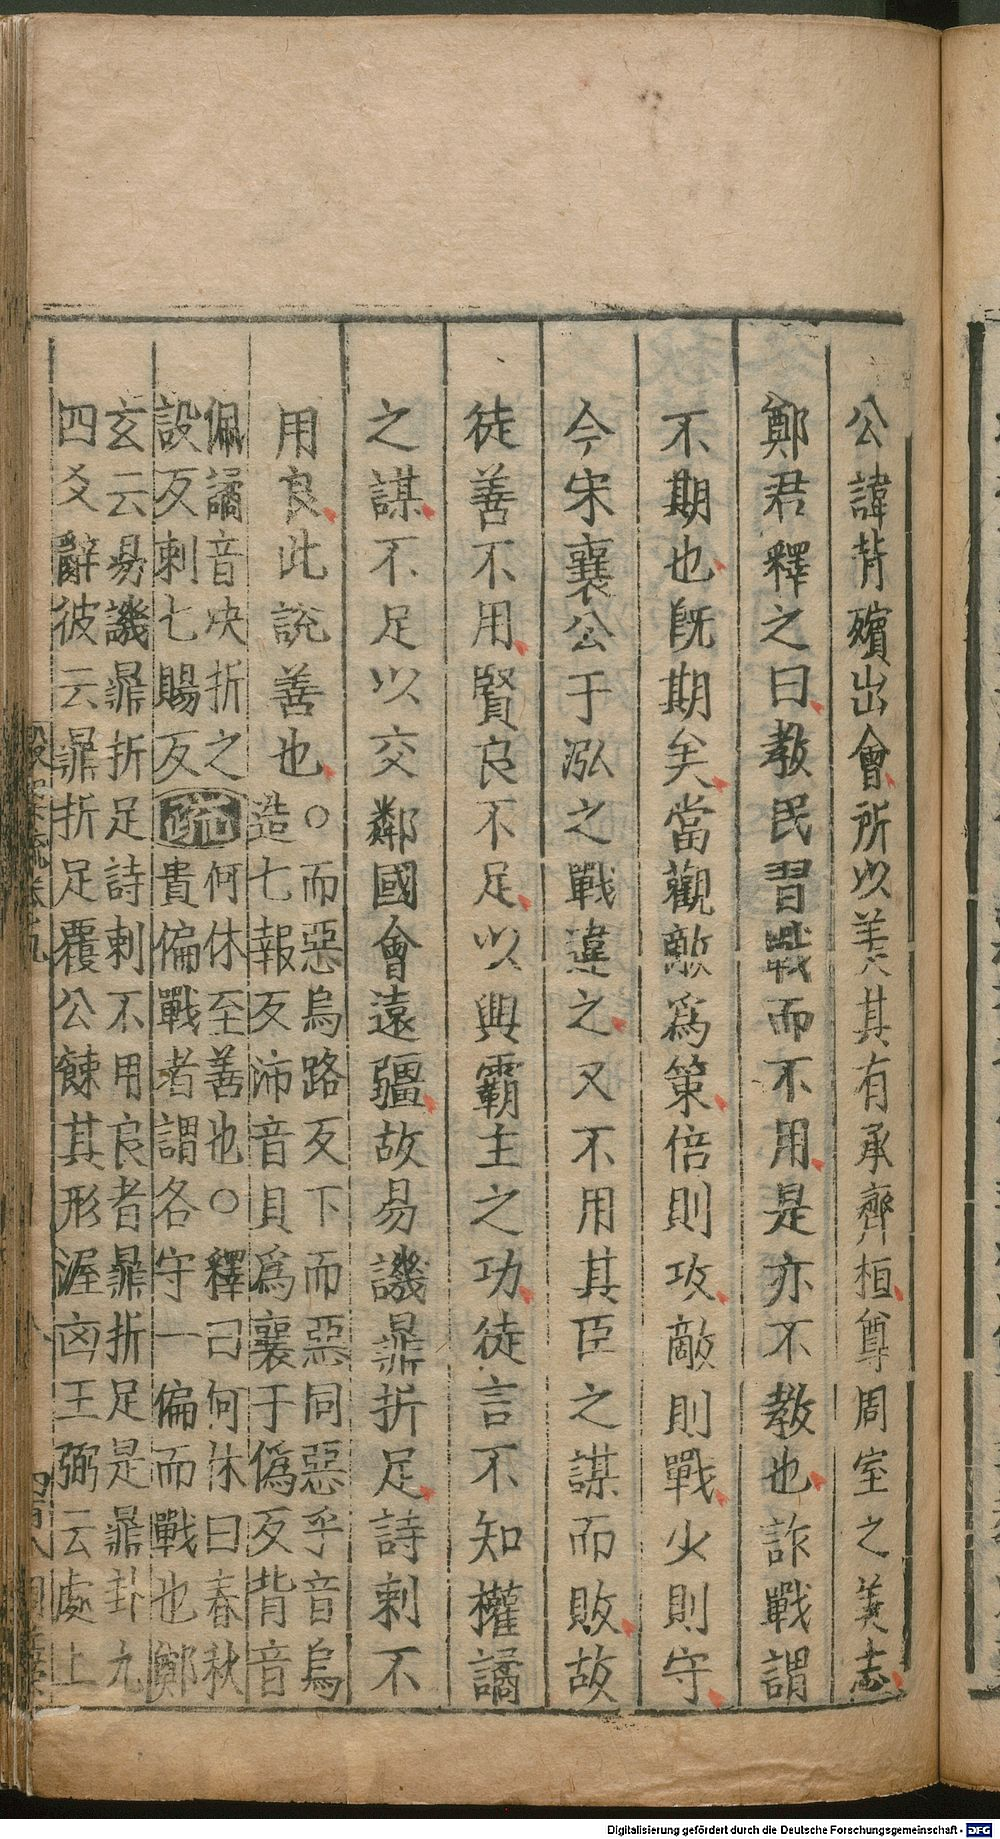 公諱背殯出會所以美其有承齊桓尊周室之美志
鄭君釋之曰教民習戰而不用是亦不教也詐戰謂
不期也旣期矣當觀敵爲策倍則攻敵則戰少則守
今宋襄公于泓之戰違之又不用其臣之謀而敗故
徒善不用賢良不足以興霸主之功徒言不知權譎
之謀不足以交鄰國會遠疆故易譏鼎折足詩刺不
用良此説善也
○而惡烏路反下而惡同惡乎音烏
造七報反沛音貝爲襄于僞反背音
佩譎音决折之
設反刺七賜反
疏
何休至善也○釋曰何休曰春秋
貴偏戰者謂各守一偏而戰也鄭
玄云易譏鼎折足詩刺不用良者鼎折足是鼎卦九
四爻辭彼云鼎折足覆公餗其形渥凶王弼云處上
Digitalisierung gefördert durch die Deutsche Forschungsgemeinschaft - DFG